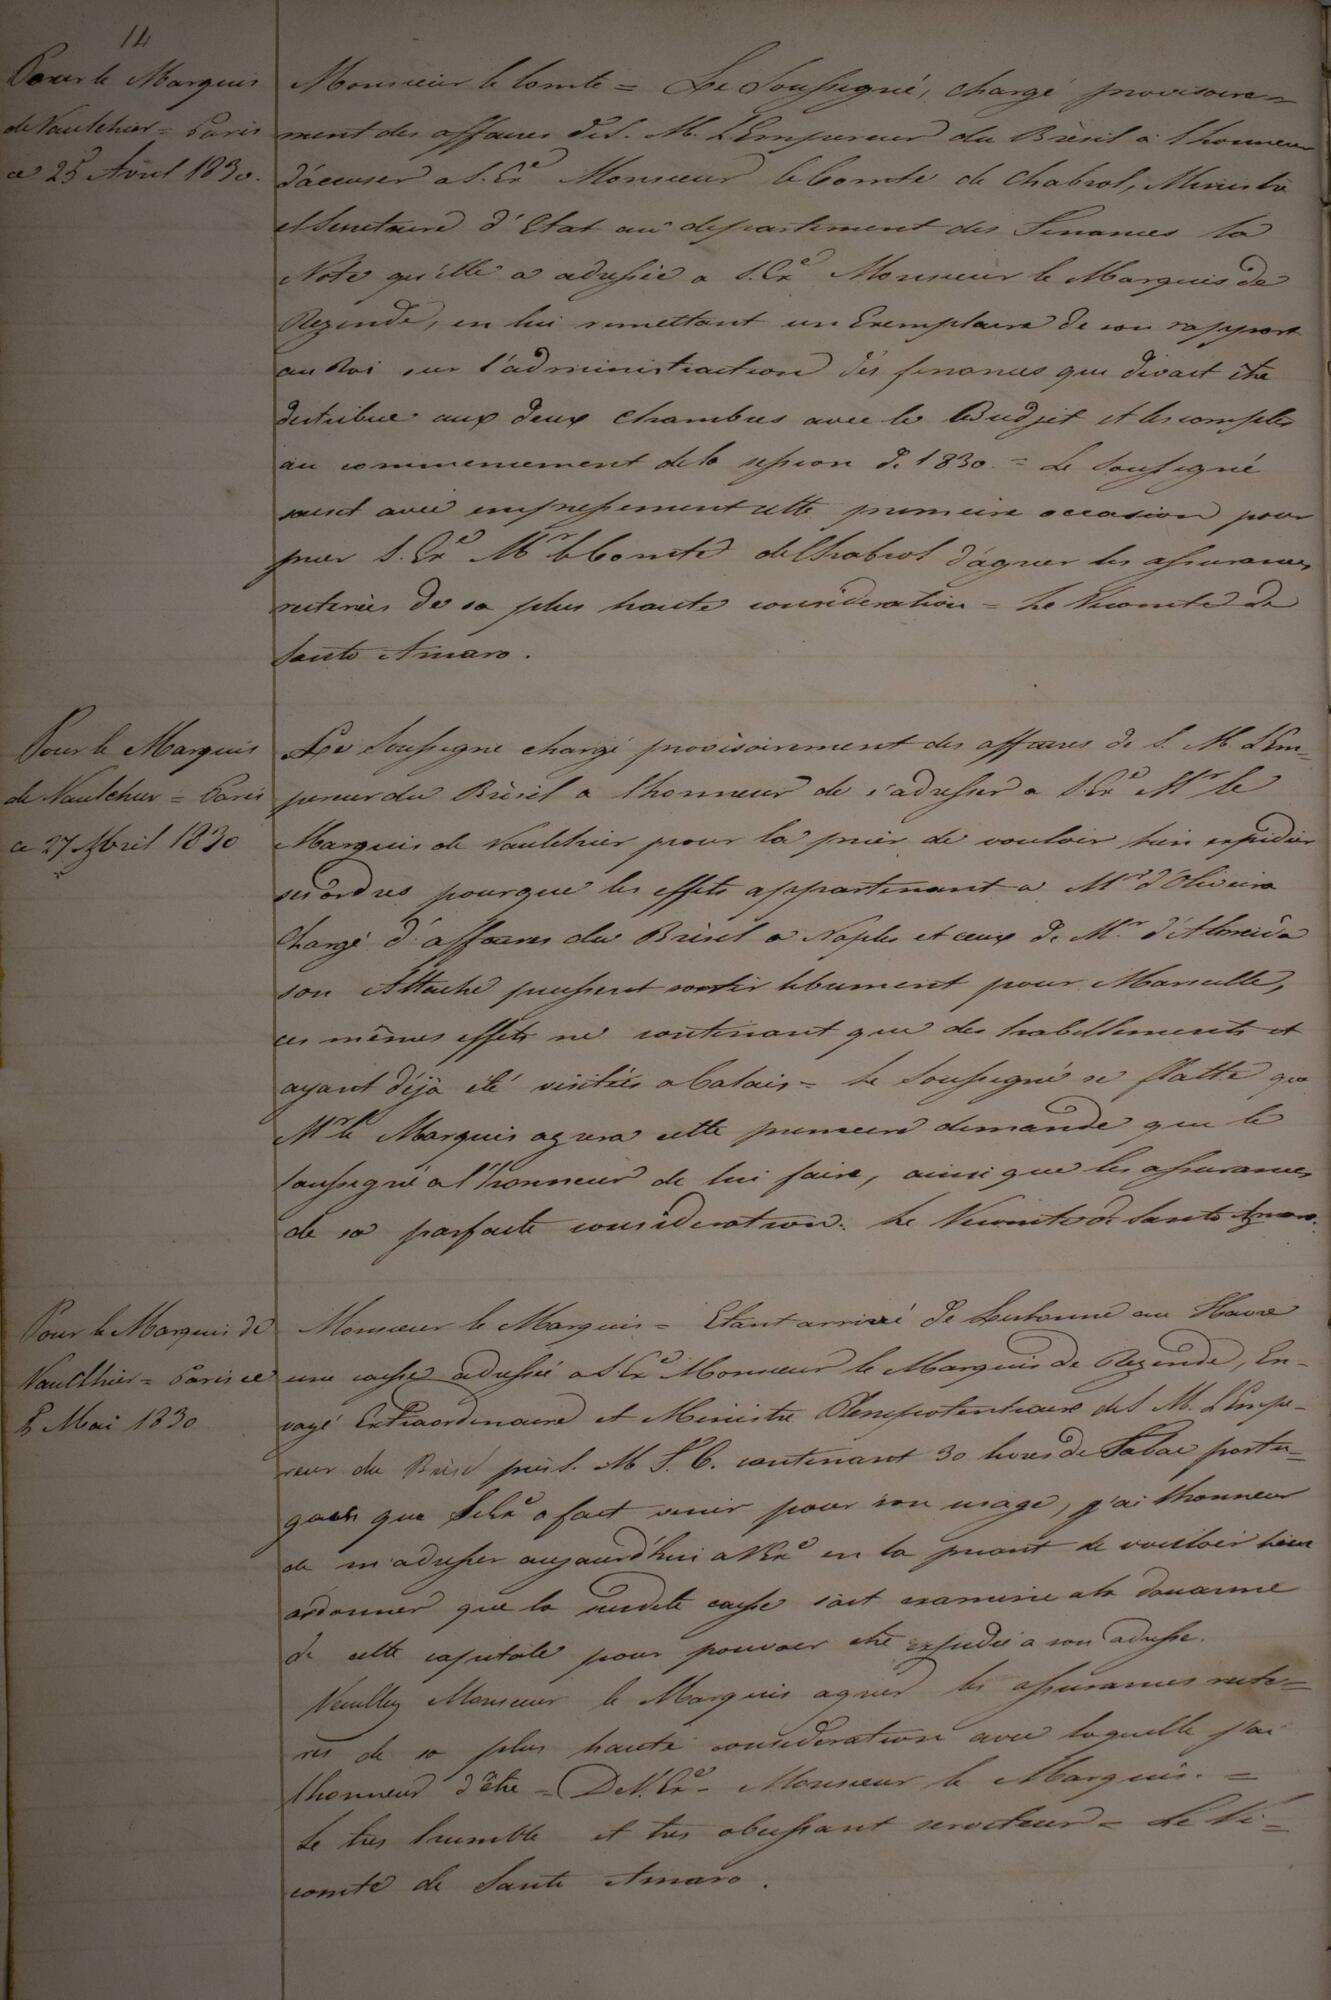 14
Pour le Marquis
de Vaulchier = Paris
ce 25 Avril 1830.
Monsieur le Comte = Le Soussigné, chargé provisoire=
ment des affaires de S. M. L'Empereur du Brèsil a l'honneur
d'accuser a S. Exce Monsieur le Comte de Chabrol, Ministre
et Secretaire d'Etat au departement des Finances la
Note qu'elle a adressée a S. Exce Monsieur le Marquis de
Rezende, en lui remettant un Exemplaire de son rapport
au Roi sur l'administraction des finances que divait être
distribue aux deux Chambres avec le Budjet et les comptes
au commencement de la session de 1830. = Le Soussigné
saisit avec empressement cette premiere occasion pour
prier S. Exce Mr le Comte de Chabrol d'agreer les assurances
reiterées de sa plus haute consideration = Le Vicomte de
Santo Amaro.
Pour le Marquis
de Vaulchier = Paris
ce 27 Avril 1830
Le Soussigne chargé provisoirement des affaires de S. M. L'Em=
pereur du Brèsil a l'honneur de s'adresser a S. Exce Mr le
Marquis de Vaulchier pour la prier de vouloir bien expedier
ses ordres pourque les effets appartenant a Mr d'Oliveira
Chargé d'affaires du Brèsil a Naples et ceux de Mr d'Almeida
son Attaché puissent sortir librement pour Marseille,
ces mêmes effets ne contenant que des habillements et
ayant déjà été visités a Calais = Le Soussigné se flatte que
Mr le Marquis agrera cette premiere demande que le
soussigné a l'honneur de lui faire, ainsi que les assurances
de sa parfaite consideration. Le Vicomte de Santo Amaro.
Pour le Marquis de
Vaulchier = Paris ce
Mai 1830
Monsieur le Marquis = Etant arrivé de Lisbonne au Havre
une caisse adressée a S. Exce Monsieur le Marquis de Rezende, En=
voyé Extraordinaire et Ministre Plenipotentiaire de S. M. L'Empe=
reur du Brèsil près S. M. T. C. contenant 30 livres de Tabac portu=
gais que S. Exce a fait venir pour son usage, j'ai l'honneur
de m'adresser aujourd'hui a V. Exce en la priant de vouloir bien
ordonner que la susdite caisse soit examinée a la douanne
de cette capitale pour pouvoir etre expediée a son adresse.
Veuillez Monsieur le Marquis agreer les assurances reite=
res de sa plus haute consideration avec laquelle j'ai
l'honneur d'être = De V. Exce = Monsieur le Marquis. =
Le tres humble et tres obeissant serviteur = Le Vi=
comte de Santo Amaro.